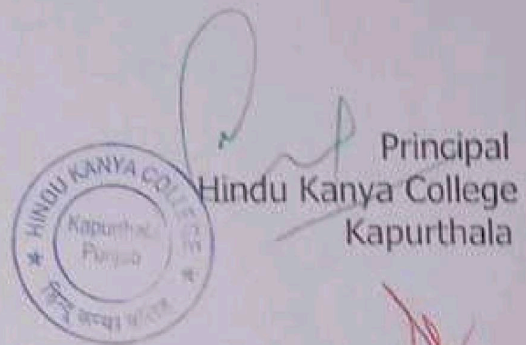 Principal
Hindu Kanya College
Kapurthala
HINDU KANYA COLLEGE
Kapurthala
Punjab
हिन्दू कन्या कॉलेज